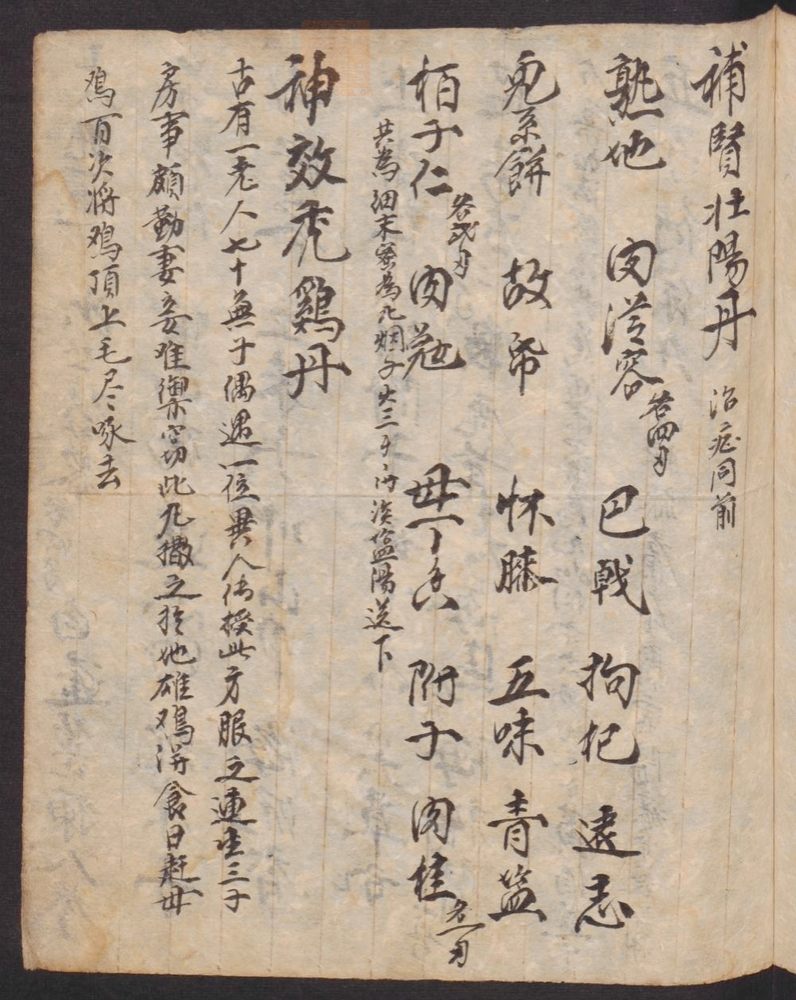 補腎壯陽丹 治症同前
熟地 肉蓯容 各四刃 巴戟 拘杞 遠志
兎糸餅 故帋 怀膝 五味 青盐
栢子仁 各弍刃 肉蔻 母丁香 附子 肉桂 各一刃
共為细末蜜為丸 子大三十 淡盐湯送下
神效禿鷄丹
古有一老人七十無子偶遇一位異人传授此方服之連生三子
房事頗勤妻妾难禦 切此丸撒之於地雄鸡 食日赶母
鸡百次将鸡頂上毛尽啄去